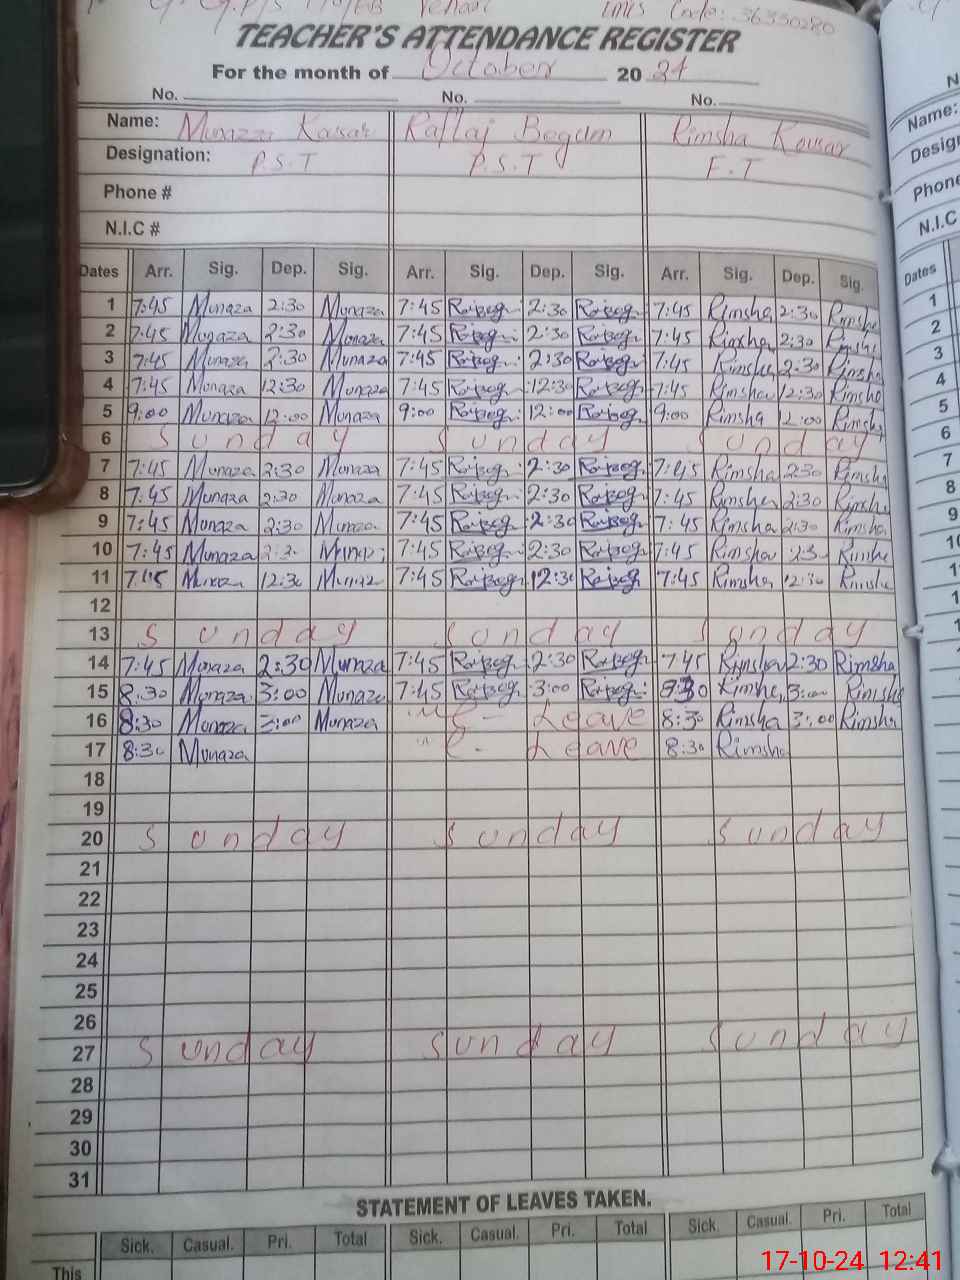 TEACHER'S ATTENDANCE REGISTER
For the month of October 20 24
No. No. No.
Name: Munazza Kausar Raffaj Begum Rimsha Kousar
Designation: P.S.T P.S.T E.T
Phone #
N.I.C #
Dates Arr. Sig. Dep. Sig. Arr. Sig. Dep. Sig. Arr. Sig. Dep. Sig.
1 7:45 Munaza 2:30 Munaza 7:45 2:30 7:45 Rimsha 2:30 Rimsha
2 7:45 Munaza 2:30 Munaza 7:45 2:30 7:45 Rimsha 2:30 Rimsha
3 7:45 Munaza 2:30 Munaza 7:45 2:30 7:45 Rimsha 2:30 Rimsha
4 7:45 Munaza 12:30 Munaza 7:45 12:30 7:45 Rimsha 12:30 Rimsha
5 9:00 Munaza 12:00 Munaza 9:00 12:00 9:00 Rimsha 12:00 Rimsha
6 Sunday Sunday Sunday
7 7:45 Munaza 2:30 Munaza 7:45 2:30 7:45 Rimsha 2:30 Rimsha
8 7:45 Munaza 2:30 Munaza 7:45 2:30 7:45 Rimsha 2:30 Rimsha
9 7:45 Munaza 2:30 Munaza 7:45 2:30 7:45 Rimsha 2:30 Rimsha
10 7:45 Munaza 7:45 2:30 7:45 Rimsha Rimsha
11 7:45 12:30 7:45 12:30 7:45 Rimsha 12:30 Rimsha
12
13 Sunday Sunday Sunday
14 7:45 Munaza 2:30 Munaza 7:45 2:30 7:45 Rimsha 2:30 Rimsha
15 8:30 Munaza 3:00 Munaza 7:45 3:00 Rimsha 3:00 Rimsha
16 8:30 Munaza 3:00 Munaza Leave 8:30 Rimsha 3:00 Rimsha
17 8:30 Munaza Leave 8:30 Rimsha
18
19
20 Sunday Sunday Sunday
21
22
23
24
25
26
27 Sunday Sunday Sunday
28
29
30
31
STATEMENT OF LEAVES TAKEN.
Sick. Casual. Pri. Total Sick. Casual. Pri. Total Sick. Casual. Pri. Total
This
17-10-24 12:41